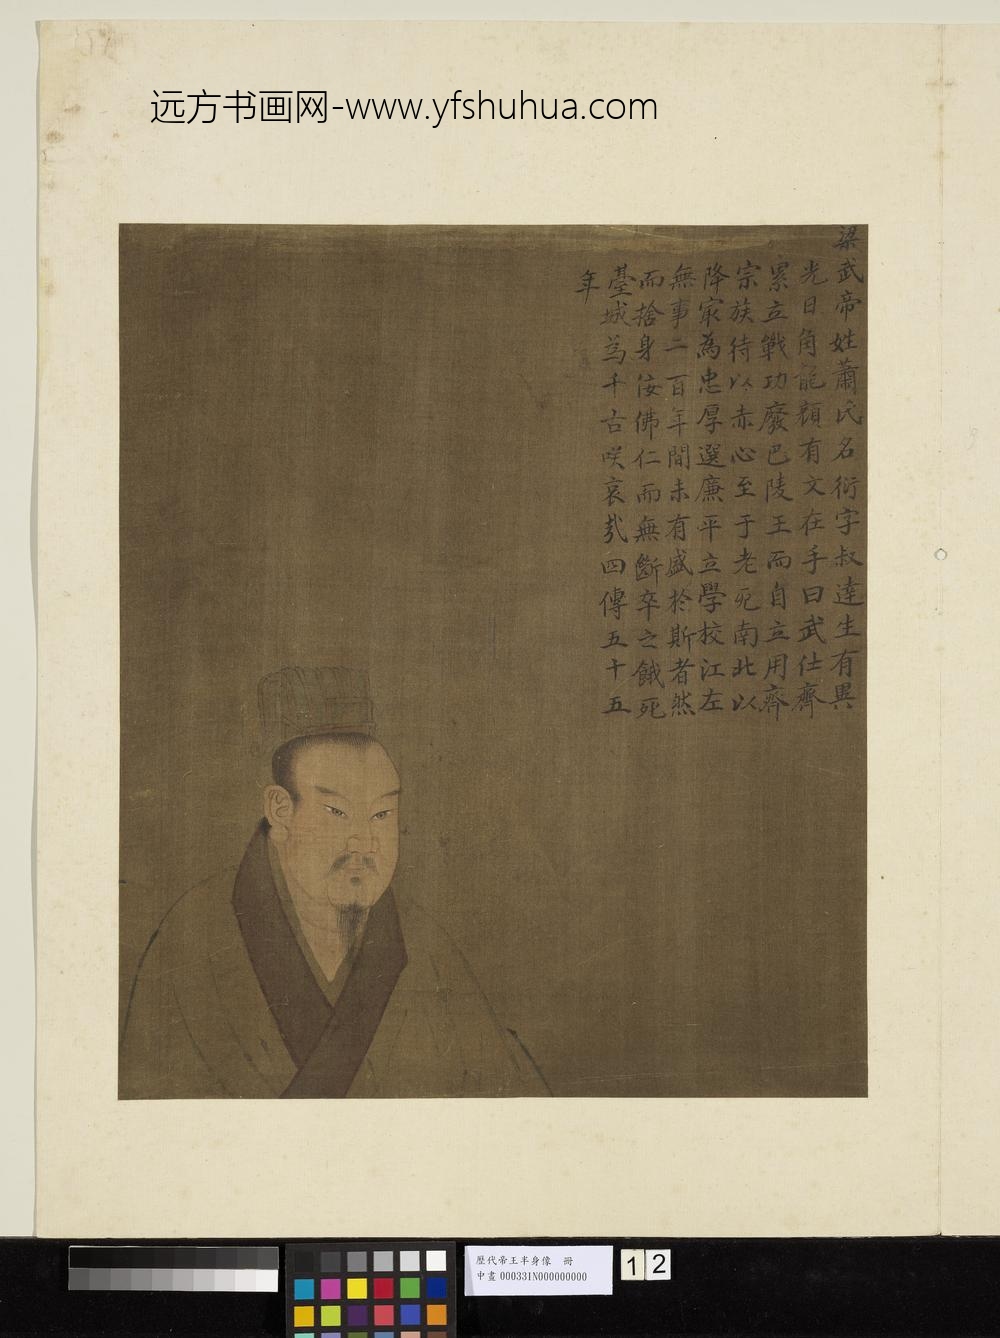 远方书画网-www.yfshuhua.com
梁武帝姓蕭氏名衍字叔達生有異
光日角龍顏有文在手曰武仕齊
累立戰功廢巴陵王而自立用齊
宗族待以赤心至于老死南北以
降家為忠厚選廉平立學校江左
無事二百年間未有盛於斯者然
而捨身佞佛仁而無斷卒之餓死
臺城為千古咲哀哉四傳五十五
年
歷代帝王半身像 冊
中畫000331N000000000
12